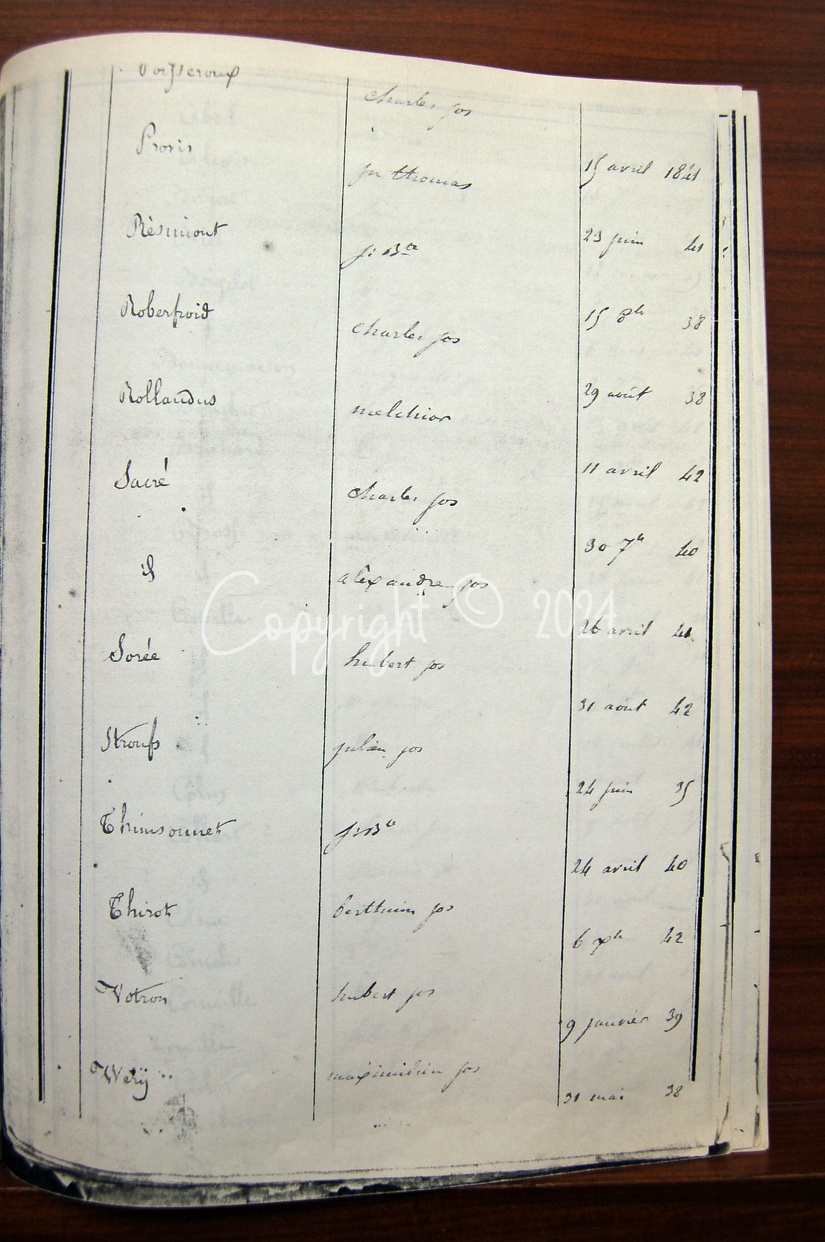 Charles jos
Provis jn thomas 15 avril 1841
Résimont j: Bte 23 juin 41
Roberfroid Charles jos 15 8bre 38
Rollandus melchior 29 août 38
Sacré Charles jos 11 avril 42
id alexandre jos 30 7bre 40
Sorée hubert jos 26 avril
Stroufs julien jos 31 aout 42
Thimsonnet j: Bte 24 juin 35
Thirot jos 24 avril 40
Votron hubert jos 6 42
Weÿ maximilien jos 9 janvier 39
31 mai 38
Copyright © 2024